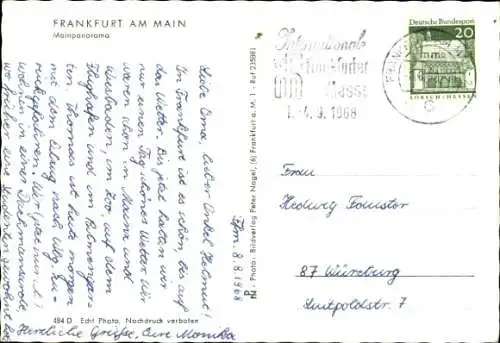 FRANKFURT AM MAIN
Mainpanorama
Liebe Oma, lieber Onkel Helmut!
In Frankfurt ist es schön, bis auf
das Wetter. Bis jetzt hatten wir
nur einen Tag schönes Wetter. Wir
waren schon in Mainz und
Wiesbaden, im Zoo, auf dem
Flughafen und im Palmengar-
ten. Thomas ist heute morgen
mit dem Eilzug nach Wbg. zu-
rückgefahren. Wir (jetzt nur 4!)
wohnen in einer Dachmansarde,
wo früher eine Studentin gewohnt hat.
Herzliche Grüße, Eure Monika
484 D Echt Photo, Nachdruck verboten
Photo: Bildverlag Peter Nagel, (6) Frankfurt a. M. 1 - Ruf 235981
Ffm. 8.8.1968
Internationale
Frankfurter
Messe
1.-4. 9. 1968
FRANKFURT
Deutsche Bundespost
20
LORSCH · HESSEN
Frau
Hedwig
87 Würzburg
Luitpoldstr. 7